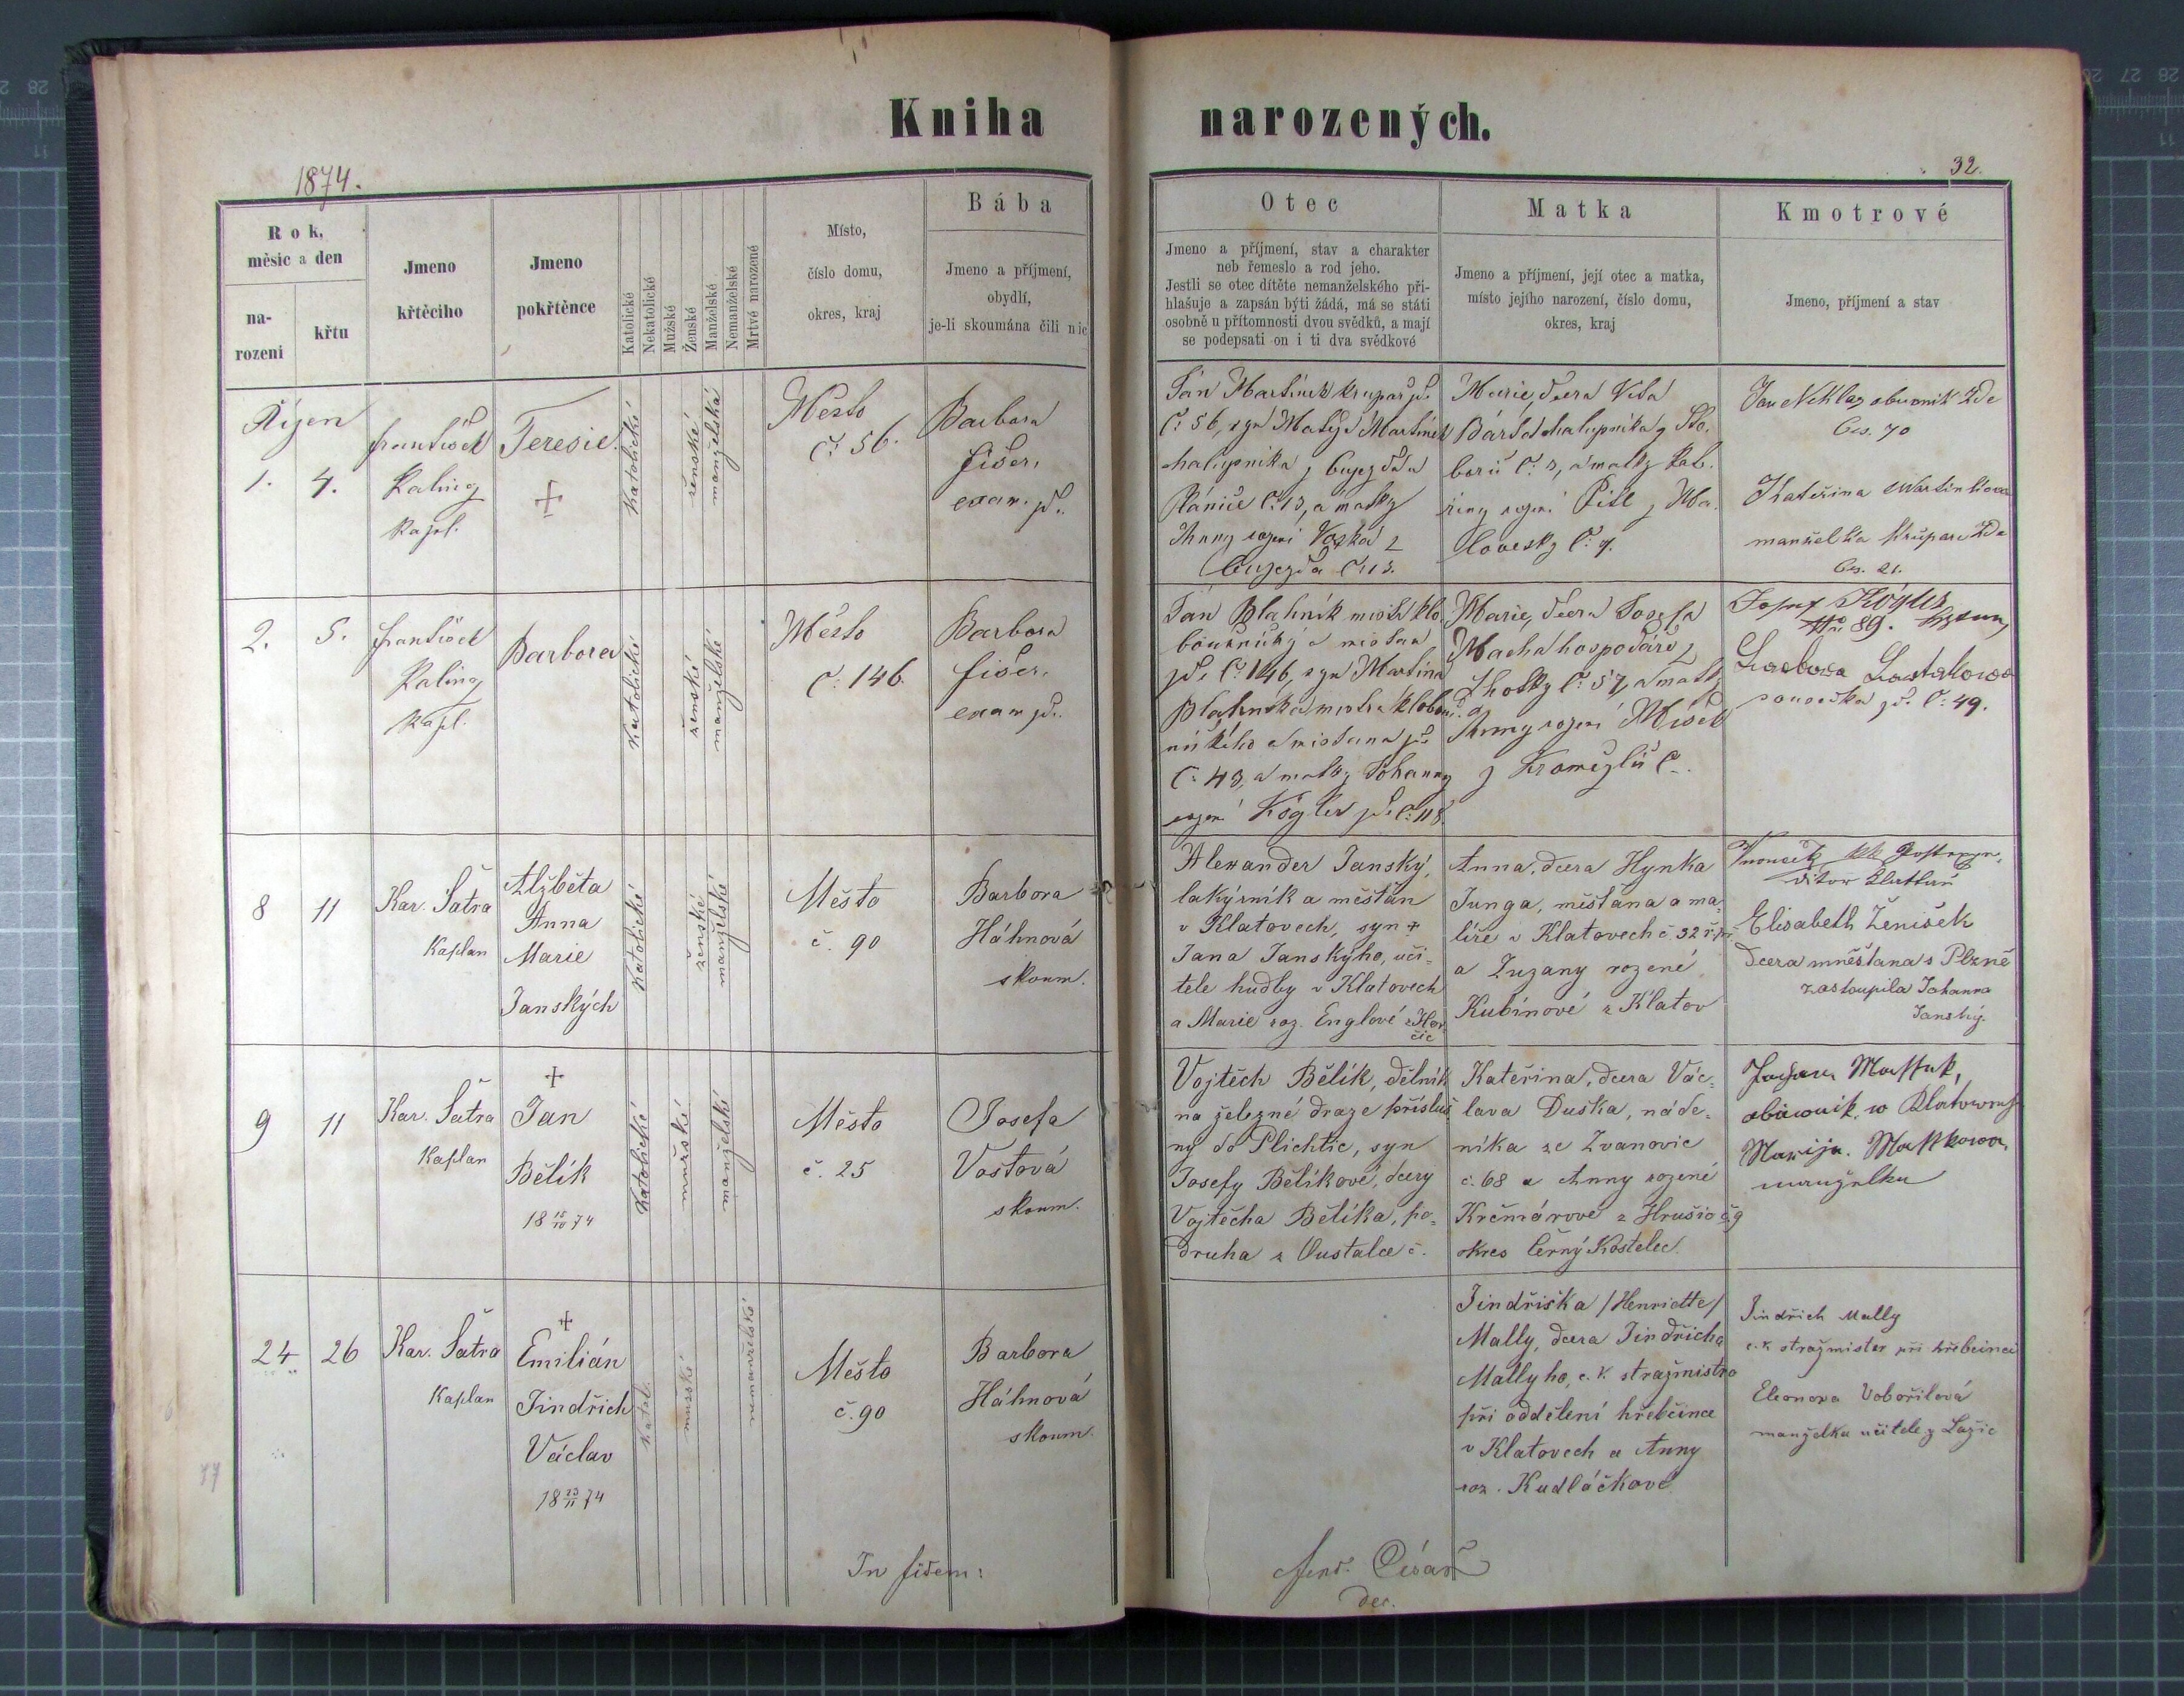 Kniha narozených.
1874.
32.
Rok,
měsíc a den
na-
rozeni
křtu
Jmeno
křtěcího
Jmeno
pokřtěnce
Katolické
Nekatolické
Mužské
Ženské
Manželské
Nemanželské
Mrtvé narozené
Místo,
číslo domu,
okres, kraj
Bába
Jmeno a příjmení,
obydlí,
je-li skoumána čili nic
Otec
Jmeno a příjmení, stav a charakter
neb řemeslo a rod jeho.
Jestli se otec dítěte nemanželského při-
hlašuje a zapsán býti žádá, má se státi
osobně u přítomnosti dvou svědků, a mají
se podepsati on i ti dva svědkové
Matka
Jmeno a příjmení, její otec a matka,
místo jejího narození, číslo domu,
okres, kraj
Kmotrové
Jmeno, příjmení a stav
Říjen
1.
4.
František
Kalina
Kapl.
Teresie.
katolické
ženské
manželské
Město
č. 56.
Barbora
Fišer,
exam. zd.
Jan Martínek krupař zd.
č. 56, syn Matěje Martínek
chalupníka z
Plánice č. 13, a matky
Anny rozené
č. 13.
Marie, dcera Víta
Bárta chalupníka z
č. 3, a matky
rozené z
č. 7.
Jan obuvník zde
čís. 70
Kateřina Martinkova
manželka krupaře zde
čís. 21.
2.
5.
František
Kalina
Kapl.
Barbora
katolické
ženské
manželské
Město
č. 146.
Barbora
Fišer,
exam zd.
Jan Blahník mistr klo-
boučnický a mistan
zd. č. 146, syn Martina
Blahníka mistra klobou-
nického a mistana zd.
č. 43, a matky Johanny
rozené Kögler zd. č. 118.
Marie, dcera Josefa
Macha hospodáře z
Lhotky č. 57, a matky
Anny rozené Míšek
z č.
Josef Kögler
No 89.
zd. č. 49.
8
11
Kar. Šatra
Kaplan
Alžběta
Anna
Marie
Janských
katolické
ženské
manželské
Město
č. 90
Barbora
Háhnová
skoum.
Alexander Janský,
lakýrník a měštan
v Klatovech, syn +
Jana Janskýho, uči-
tele hudby v Klatovech
a Marie roz. Englové z Hor-
čic
Anna, dcera Hynka
Junga, měštana a ma-
líře v Klatovech č 32
a Zuzany rozené
Kubínové z Klatov
Elisabeth Ženíšek
dcera mněštana s Plzně
zastoupila Johanna
Janský.
9
11
Kar. Šatra
Kaplan
+
Jan
Bělík
18 15/10 74
katolické
mužské
manželské
Město
č. 25
Josefa
Vostová
skoum.
Vojtěch Bělík, dělník
na železné draze přísluš-
ný do Plichtic, syn
Josefy Bělíkové, dcery
Vojtěcha Bělíka, po-
druha z Oustalce č.
Kateřina, dcera Vác-
lava Duška, náde-
níka ze Zvanovic
č. 68 a Anny rozené
Krčmárové z Hrušic č. 9
okres Černý Kostelec.
obuwnik w
Marija
24
26
Kar. Šatra
Kaplan
+
Emilián
Jindřich
Václav
18 23/11 74
katol.
mužské
nemanželské
Město
č. 90
Barbora
Háhnová
skoum.
Jindřiška /Henriette/
Mally, dcera Jindřicha
Mallyho, c. k. stražmistra
při oddělení hřebčince
v Klatovech a Anny
roz. Kudláčkové
Jindřich Mally
c. k. stražmister při hřebčinci
Eleonora Vobořilová
manželka učitele z Lažic
In fidem:
Ferd. Císař
děc.
77